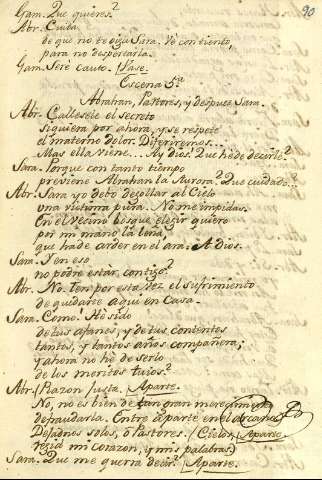 90
Gam. Que quieres?
Abr. Cuida
de que no te oiga Sara. Vé con tiento,
para no despertarla.
Gam. Seré cauto. (Vase.
Escena 5ª
Abrahan, Pastores, y despues Sara.
Abr. Callesele el secreto
siquiera por ahora, y se respete
el materno dolor. Diferiremos...
Mas ella viene... Ay dios! Que hé de decirle?
Sara. Porque con tanto tiempo
previene Abrahan la Aurora? Que cuidado?...
Abr. Sara yo debo degollar al Cielo
una victima pura. No me impidas.
En el vecino bosque elegir quiero
por mi mano la leña,
que há de arder en el ara. A Dios.
Sara. Y en eso
no podré estár contigo?
Abr. No. Ten por esta vez el sufrimiento
de quedarte aqui en Casa.
Sara. Como! Hé sido
de tus afanes, y de tus contentos
tantos, y tantos años compañera;
y ahora no hé de serlo
de los meritos tuios?
Abr. (Razon justa. (Aparte.
No, no es bien de tan gran merecimiento
defraudarla. Entre á parte en el arcano.)
Dejadnos solos, ó Pastores. (Cielos, (Aparte.
regid mi corazon, y mis palabras)
Sara. Que me querrá decir? (Aparte.